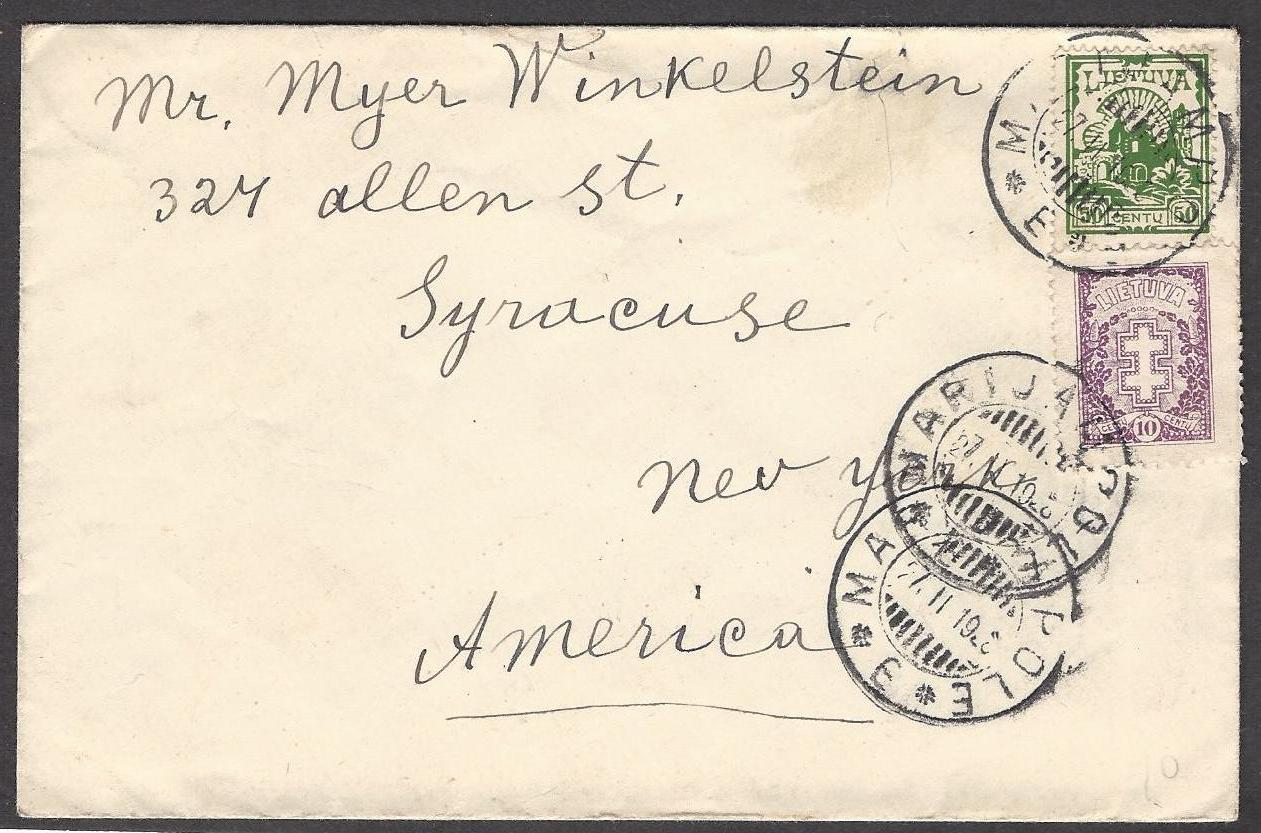 Mr. Myer Winkelstein
327 allen st.
Syracuse
New York
America
LIETUVA
50 CENTŲ 50
LIETUVA
CENTŲ 10 CENTŲ
MARIJAMPOLĖ
27 II 192
MARIJAMPOLE * 3 *
27 II 192